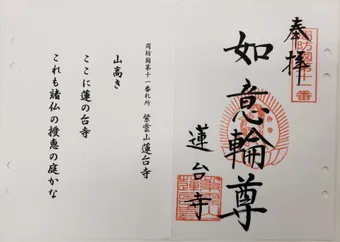 奉拝
周防國第十一番
如意輪尊
蓮台寺
周防國第十一番札所 紫雲山 蓮台寺
山高き
ここに蓮の台寺
これも諸仏の授恵の庭かな